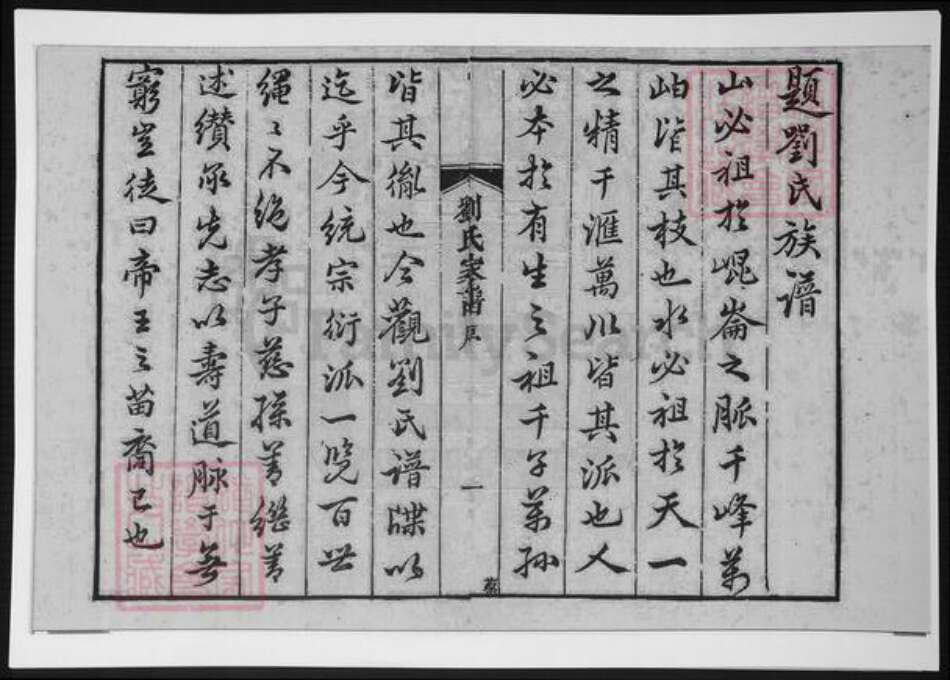 題劉氏族譜
山必祖於崐崙之脈千峰萬
岫皆其枝也水必祖於天一
之精千滙萬川皆其派也人
必本於有生之祖千子萬孫
劉氏家譜序
一
皆其胤也今觀劉氏譜牒以
迄乎今統宗衍派一覽百世
繩〻不絕孝子慈孫善繼善
述纘承先志以壽道脉于無
窮豈徒曰帝王之苗裔已也